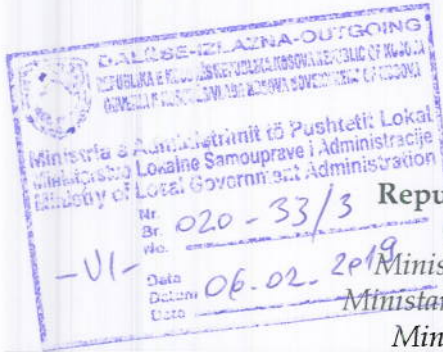 DALËSE-IZLAZNA-OUTGOING
REPUBLIKA E KOSOVËS REPUBLIKA KOSOVA REPUBLIC OF KOSOVA
QEVERIA E KOSOVËS VLADA KOSOVA GOVERNMENT OF KOSOVA
Ministria e Administrimit të Pushtetit Lokal
Ministarstvo Lokalne Samouprave i Administracije
Ministry of Local Government Administration
Nr.
Br. 020-33/3
No.
-VI-
Data
Datum 06.02.2019
Date
Repu
Minis
Ministar
Min